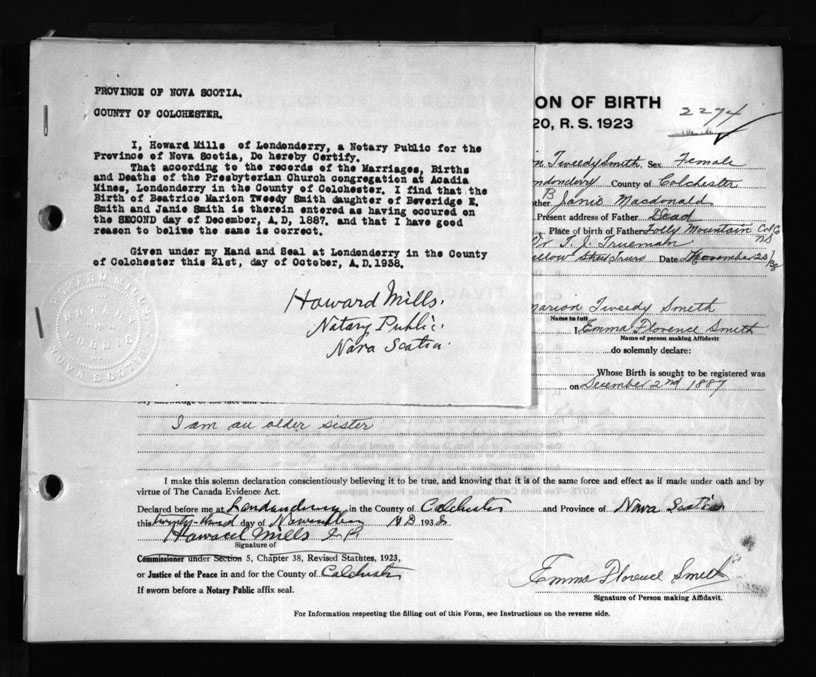 PROVINCE OF NOVA SCOTIA.
COUNTY OF COLCHESTER.
I, Howard Mills of Londonderry, a Notary Public for the
Province of Nova Scotia, Do hereby Certify.
That according to the records of the Marriages, Births
and Deaths of the Presbyterian Church congregation at Acadia
Mines, Londonderry in the County of Colchester. I find that the
Birth of Beatrice Marion Tweedy Smith daughter of Beveridge E.
Smith and Janie Smith is therein entered as having occured on
the SECOND day of December, A.D, 1887. and that I have good
reason to belive the same is correct.
Given under my Hand and Seal at Londonderry in the County
of Colchester this 21st, day of October, A.D.1938.
Howard Mills.
Notary Public.
Nova Scotia.
ON OF BIRTH
20, R. S. 1923
2274
n Tweedy Smith Sex Female
ndonderry County of Colchester
ther Janie Macdonald
Present address of Father Dead
Place of birth of Father Folly Mountain Col Co NS
Dr T. J. Trueman
Truro Date November 23
Marion Tweedy Smith
Name in full
I Emma Florence Smith
Name of person making Affidavit
do solemnly declare:
Whose Birth is sought to be registered was
on December 2nd 1887
I am an older sister
I make this solemn declaration conscientiously believing it to be true, and knowing that it is of the same force and effect as if made under oath and by
virtue of The Canada Evidence Act.
Declared before me at Londonderry in the County of Colchester and Province of Nova Scotia
this twenty-third day of November AD 1938
Howard Mills J.P.
Signature of
Commissioner under Section 5, Chapter 38, Revised Statutes, 1923,
or Justice of the Peace in and for the County of Colchester
If sworn before a Notary Public affix seal.
Emma Florence Smith
Signature of Person making Affidavit.
For Information respecting the filling out of this Form, see Instructions on the reverse side.